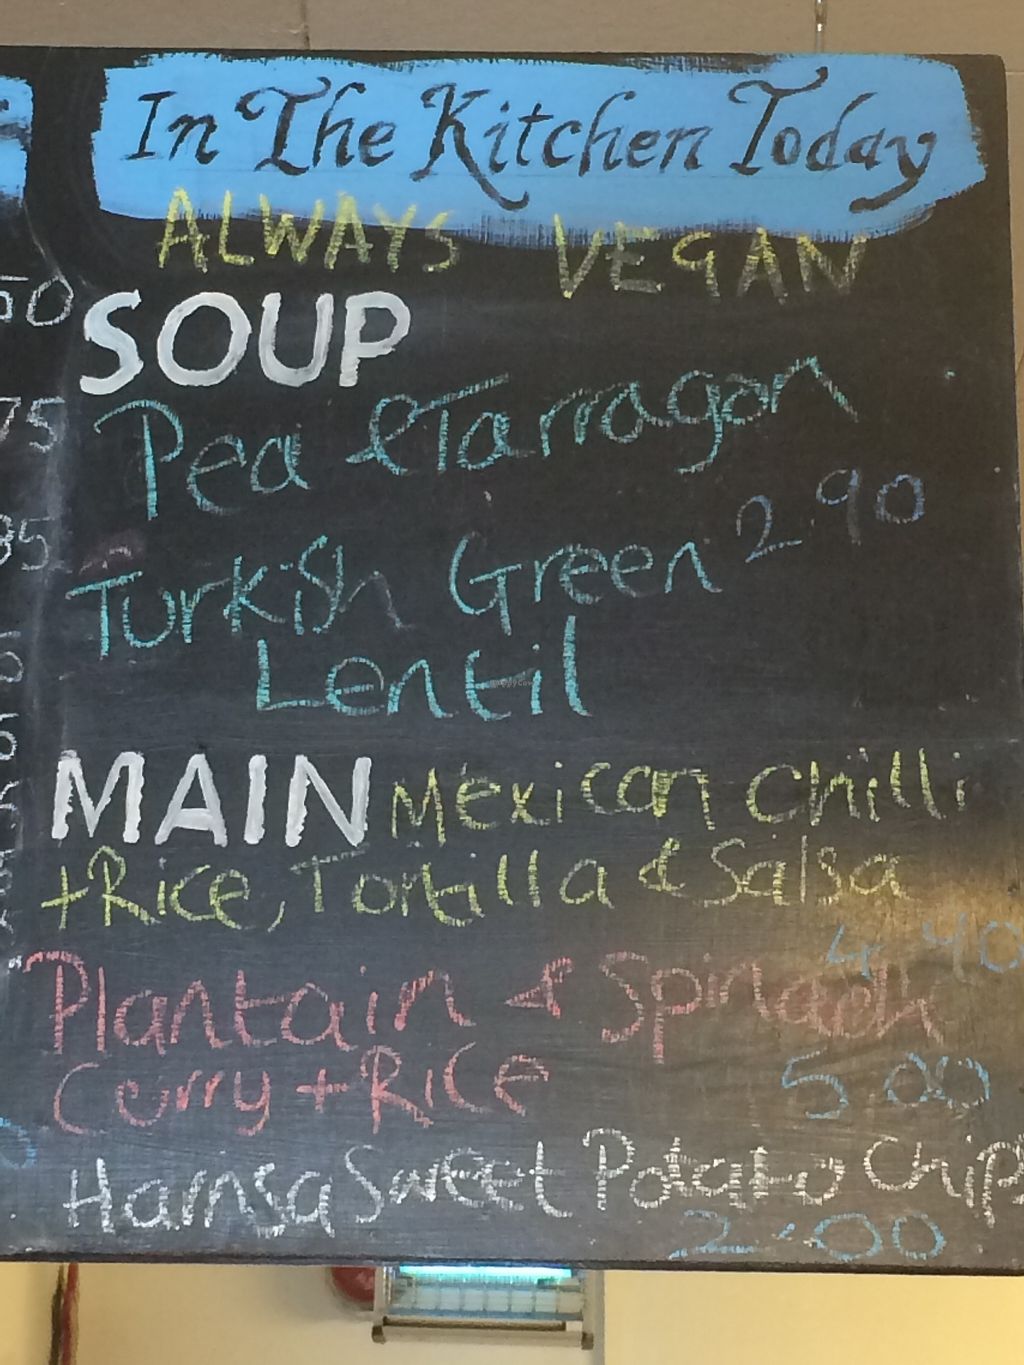 In The Kitchen Today
ALWAYS VEGAN
SOUP
Pea & Tarragon
2.90
Turkish Green
Lentil
MAIN Mexican Chilli
+Rice, Tortilla & Salsa
4.40
Plantain & Spinach
Curry + Rice
5.00
Harrisa Sweet Potato Chips
2.00
75